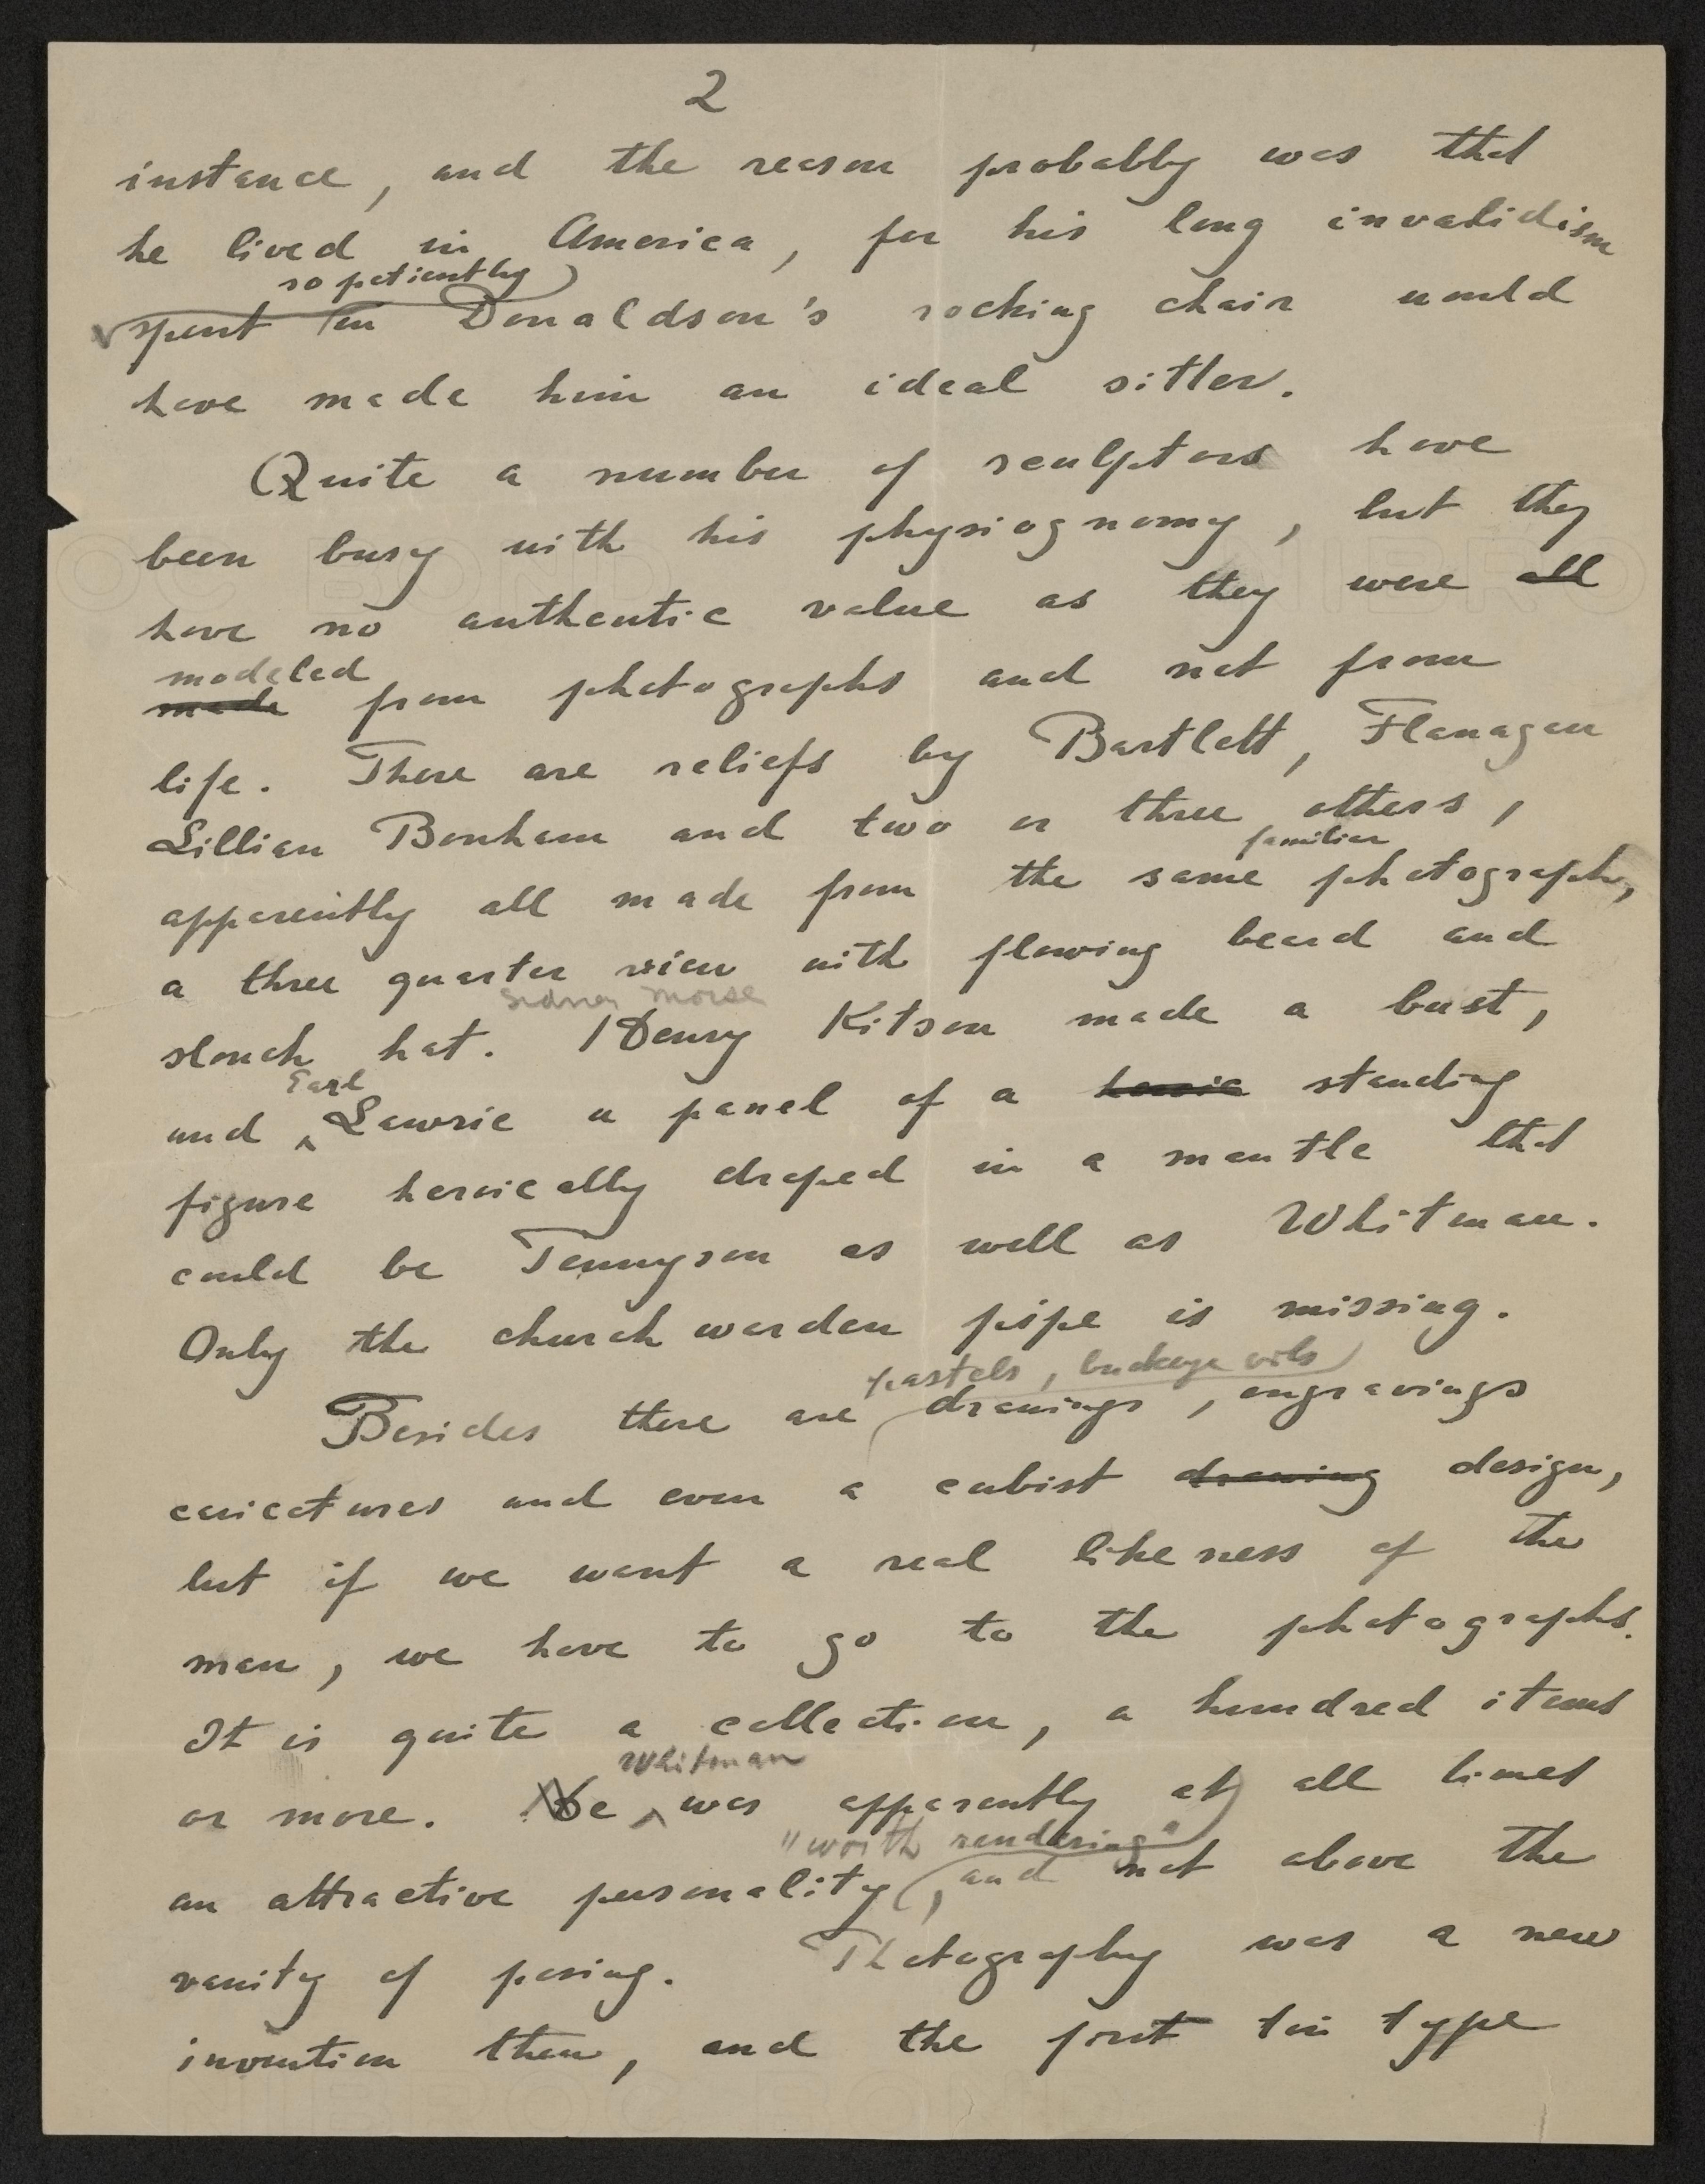 2
instance, and the reason probably was that
he lived in America, for his long invalidism
so patiently
spent in Donaldson's rocking chair would
have made him an ideal sitter.
Quite a number of sculptors have
been busy with his physiognomy, but they
have no authentic value as they were all
modeled
made from photographs and not from
life. There are reliefs by Bartlett, Flanagan
Lillian Bonham and two or three others,
familiar
apparently all made from the same photograph,
a three quarter view with flowing beard and
Sidney Morse
slouch hat. Henry Kitson made a bust,
Earl
and Lawrie a panel of a heroic standing
figure heroically draped in a mantle that
could be Tennyson as well as Whitman.
Only the church warden pipe is missing.
pastels, buckeye oils
Besides there are drawings, engravings
caricatures and even a cubist drawing design,
but if we want a real likeness of the
man, we have to go to the photographs.
It is quite a collection, a hundred items
Whitman
or more. He was apparently at all times
"worth rendering"
an attractive personality, and not above the
vanity of posing. Photography was a new
invention then, and the first tin type